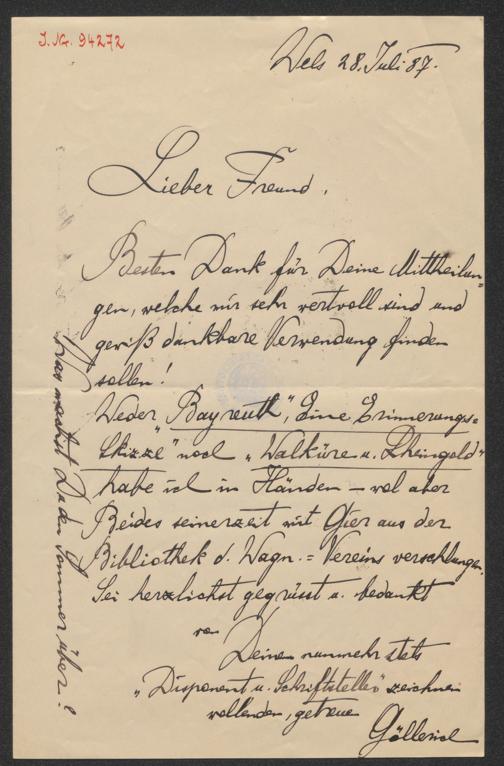 J. Nr. 94272
Wels 28. Juli 87.
Lieber Freund,
Besten Dank für Deine Mittheilun-
gen, welche mir sehr wertvoll sind und
gewiß dankbare Verwendung finden
sollen!
Weder „Bayreuth", Eine Erinnerungs=
Skizze" noch „Walküre u. Rheingold"
habe ich in Händen – wol aber
Beides seinerzeit mit Gier aus der
Bibliothek d. Wagn.=Vereins verschlungen.
Sei herzlichst gegrüsst u. bedankt
von
Deinem nunmehr stets
„Disponent u. Schriftsteller" zeichnen
wollenden, getreuen
Göllerich
Was machst Du den Sommer über?